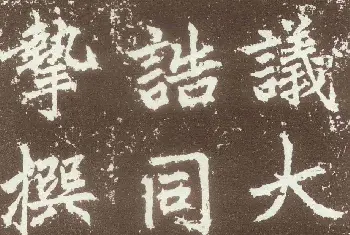 議大
誥同
摯撰